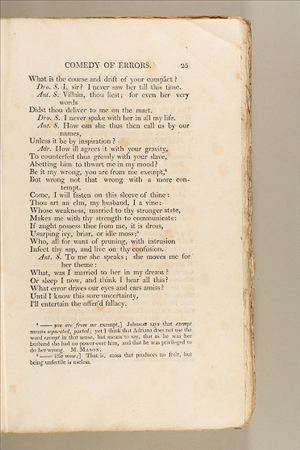 COMEDY OF ERRORS. 25
What is the course and drift of your compáct?
Dro. S. I, sir? I never saw her till this time.
Ant. S. Villain, thou liest; for even her very
words
Didst thou deliver to me on the mart.
Dro. S. I never spake with her in all my life.
Ant. S. How can she thus then call us by our
names,
Unless it be by inspiration?
Adr. How ill agrees it with your gravity,
To counterfeit thus grossly with your slave,
Abetting him to thwart me in my mood?
Be it my wrong, you are from me exempt,⁴
But wrong not that wrong with a more con-
tempt.
Come, I will fasten on this sleeve of thine:
Thou art an elm, my husband, I a vine;
Whose weakness, married to thy stronger state,
Makes me with thy strength to communicate:
If aught possess thee from me, it is dross,
Usurping ivy, briar, or idle moss;⁵
Who, all for want of pruning, with intrusion
Infect thy sap, and live on thy confusion.
Ant. S. To me she speaks; she moves me for
her theme:
What, was I married to her in my dream?
Or sleep I now, and think I hear all this?
What error drives our eyes and ears amiss?
Until I know this sure uncertainty,
I'll entertain the offer'd fallacy.
⁴ —— you are from me exempt,] Johnson says that exempt
means separated, parted; yet I think that Adriana does not use the
word exempt in that sense, but means to say, that as he was her
husband she had no power over him, and that he was privileged to
do her wrong. M. MASON.
⁵ —— idle moss;] That is, moss that produces no fruit, but
being unfertile is useless.